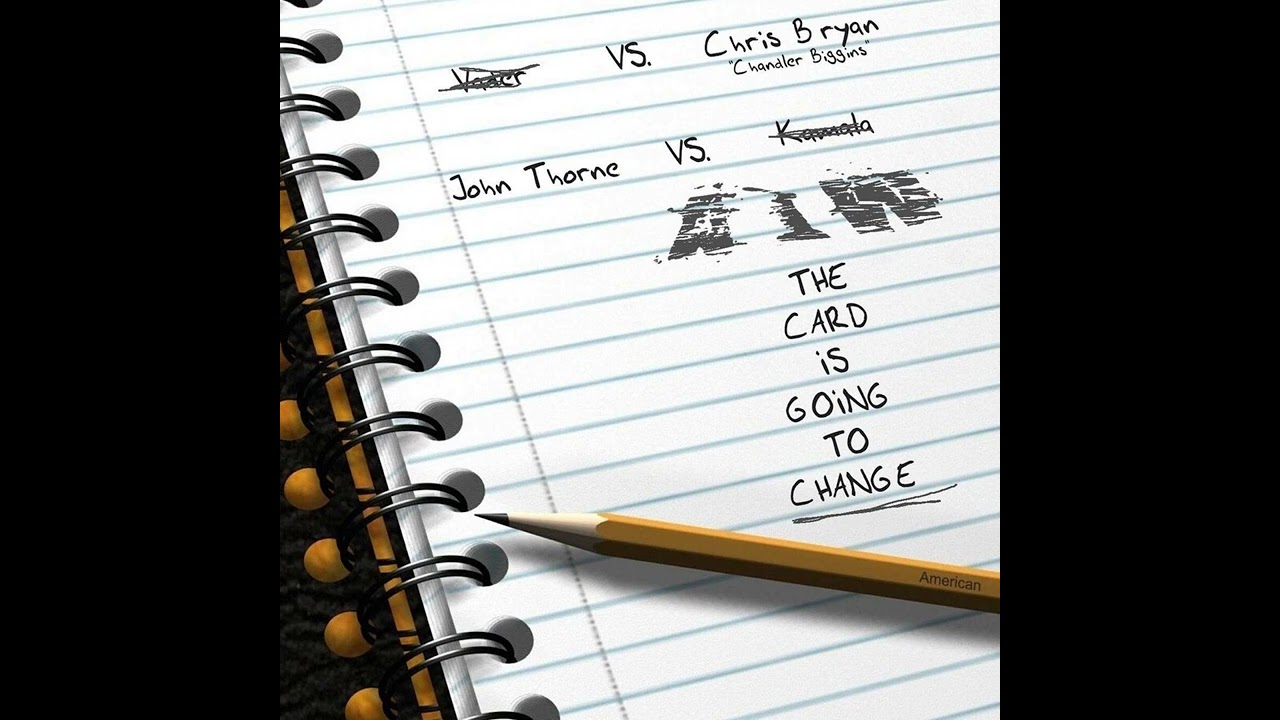 Vader VS. Chris Bryan
"Chandler Biggins"
John Thorne VS. Kamala
AIW
THE
CARD
iS
GOiNG
TO
CHANGE
American